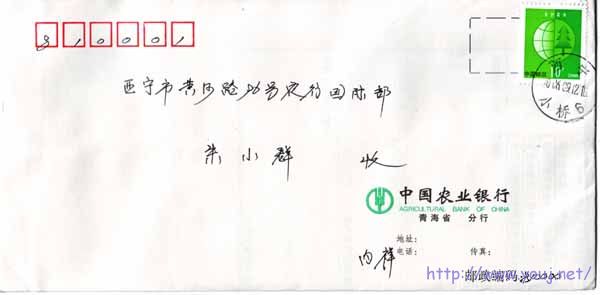 810001
西宁市黄河路 农行国际部
朱小群 收
中国农业银行
AGRICULTURAL BANK OF CHINA
青海省 分行
地址:
电话: 传真:
内详
邮政编码
中国邮政
10
桥